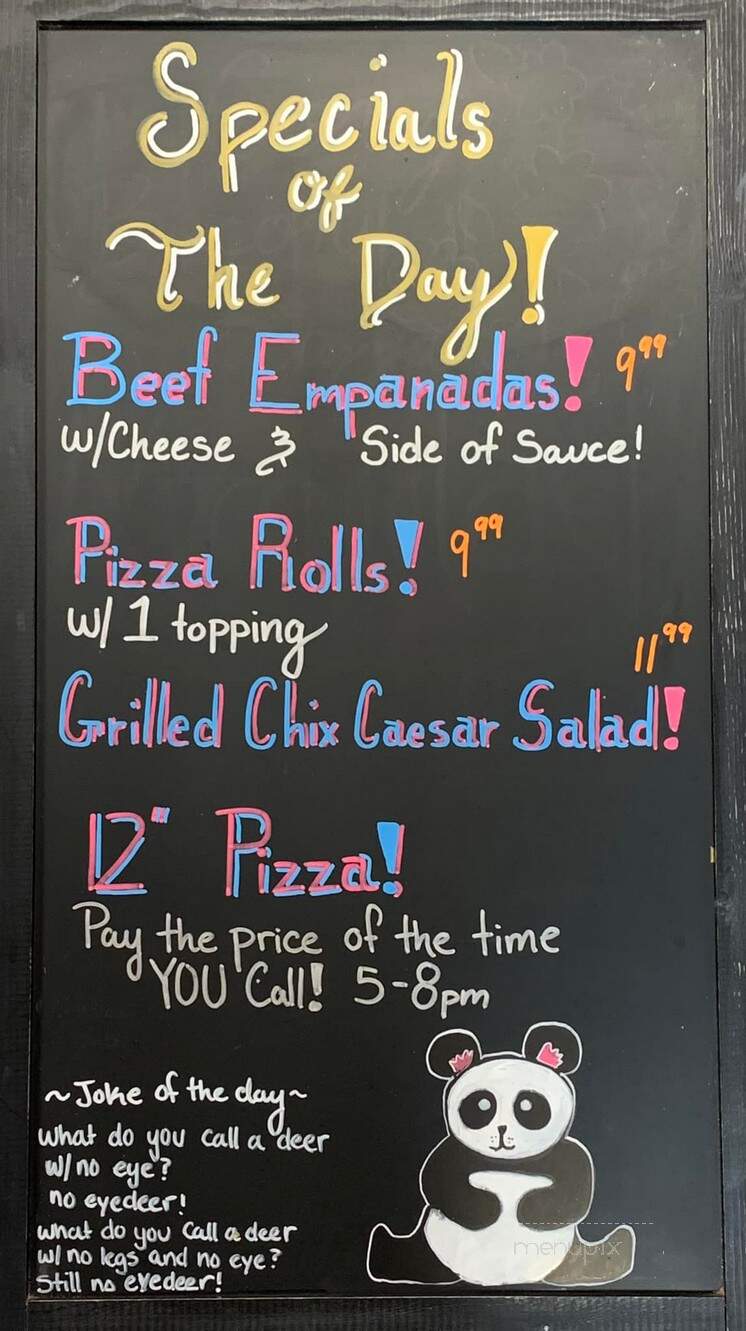 Specials
of
The Day!
Beef Empanadas! 9⁹⁹
w/Cheese & Side of Sauce!
Pizza Rolls! 9⁹⁹
w/ 1 topping
11⁹⁹
Grilled Chix Caesar Salad!
12" Pizza!
Pay the price of the time
YOU Call! 5-8pm
~Joke of the day~
what do you call a deer
w/ no eye?
no eyedeer!
what do you call a deer
w/ no legs and no eye?
Still no eyedeer!
menupix